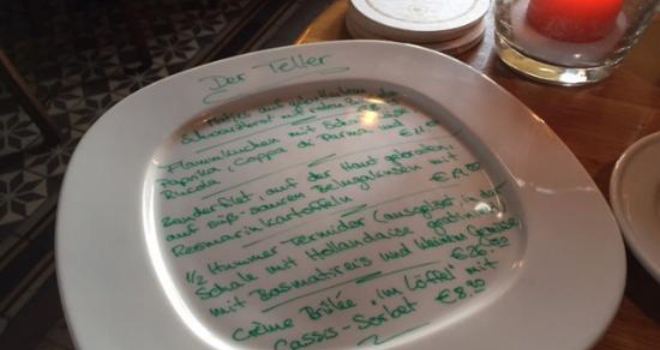 Der Teller
Matjes auf
Schwarzbrot mit roten
Flammkuchen mit
Paprika, Coppa di Parma und
Rucola
Zanderfilet, auf der Haut gebraten,
auf süß-sauren Belugalinsen mit
Rosmarinkartoffeln € 19.80
1/2 Hummer Termidor (ausgelöst in der
Schale mit Hollandaise gratiniert)
mit Basmatireis und kleinem Gemüse
€ 26.50
Crème Brûlée "im Löffel" mit
Cassis-Sorbet € 8.90